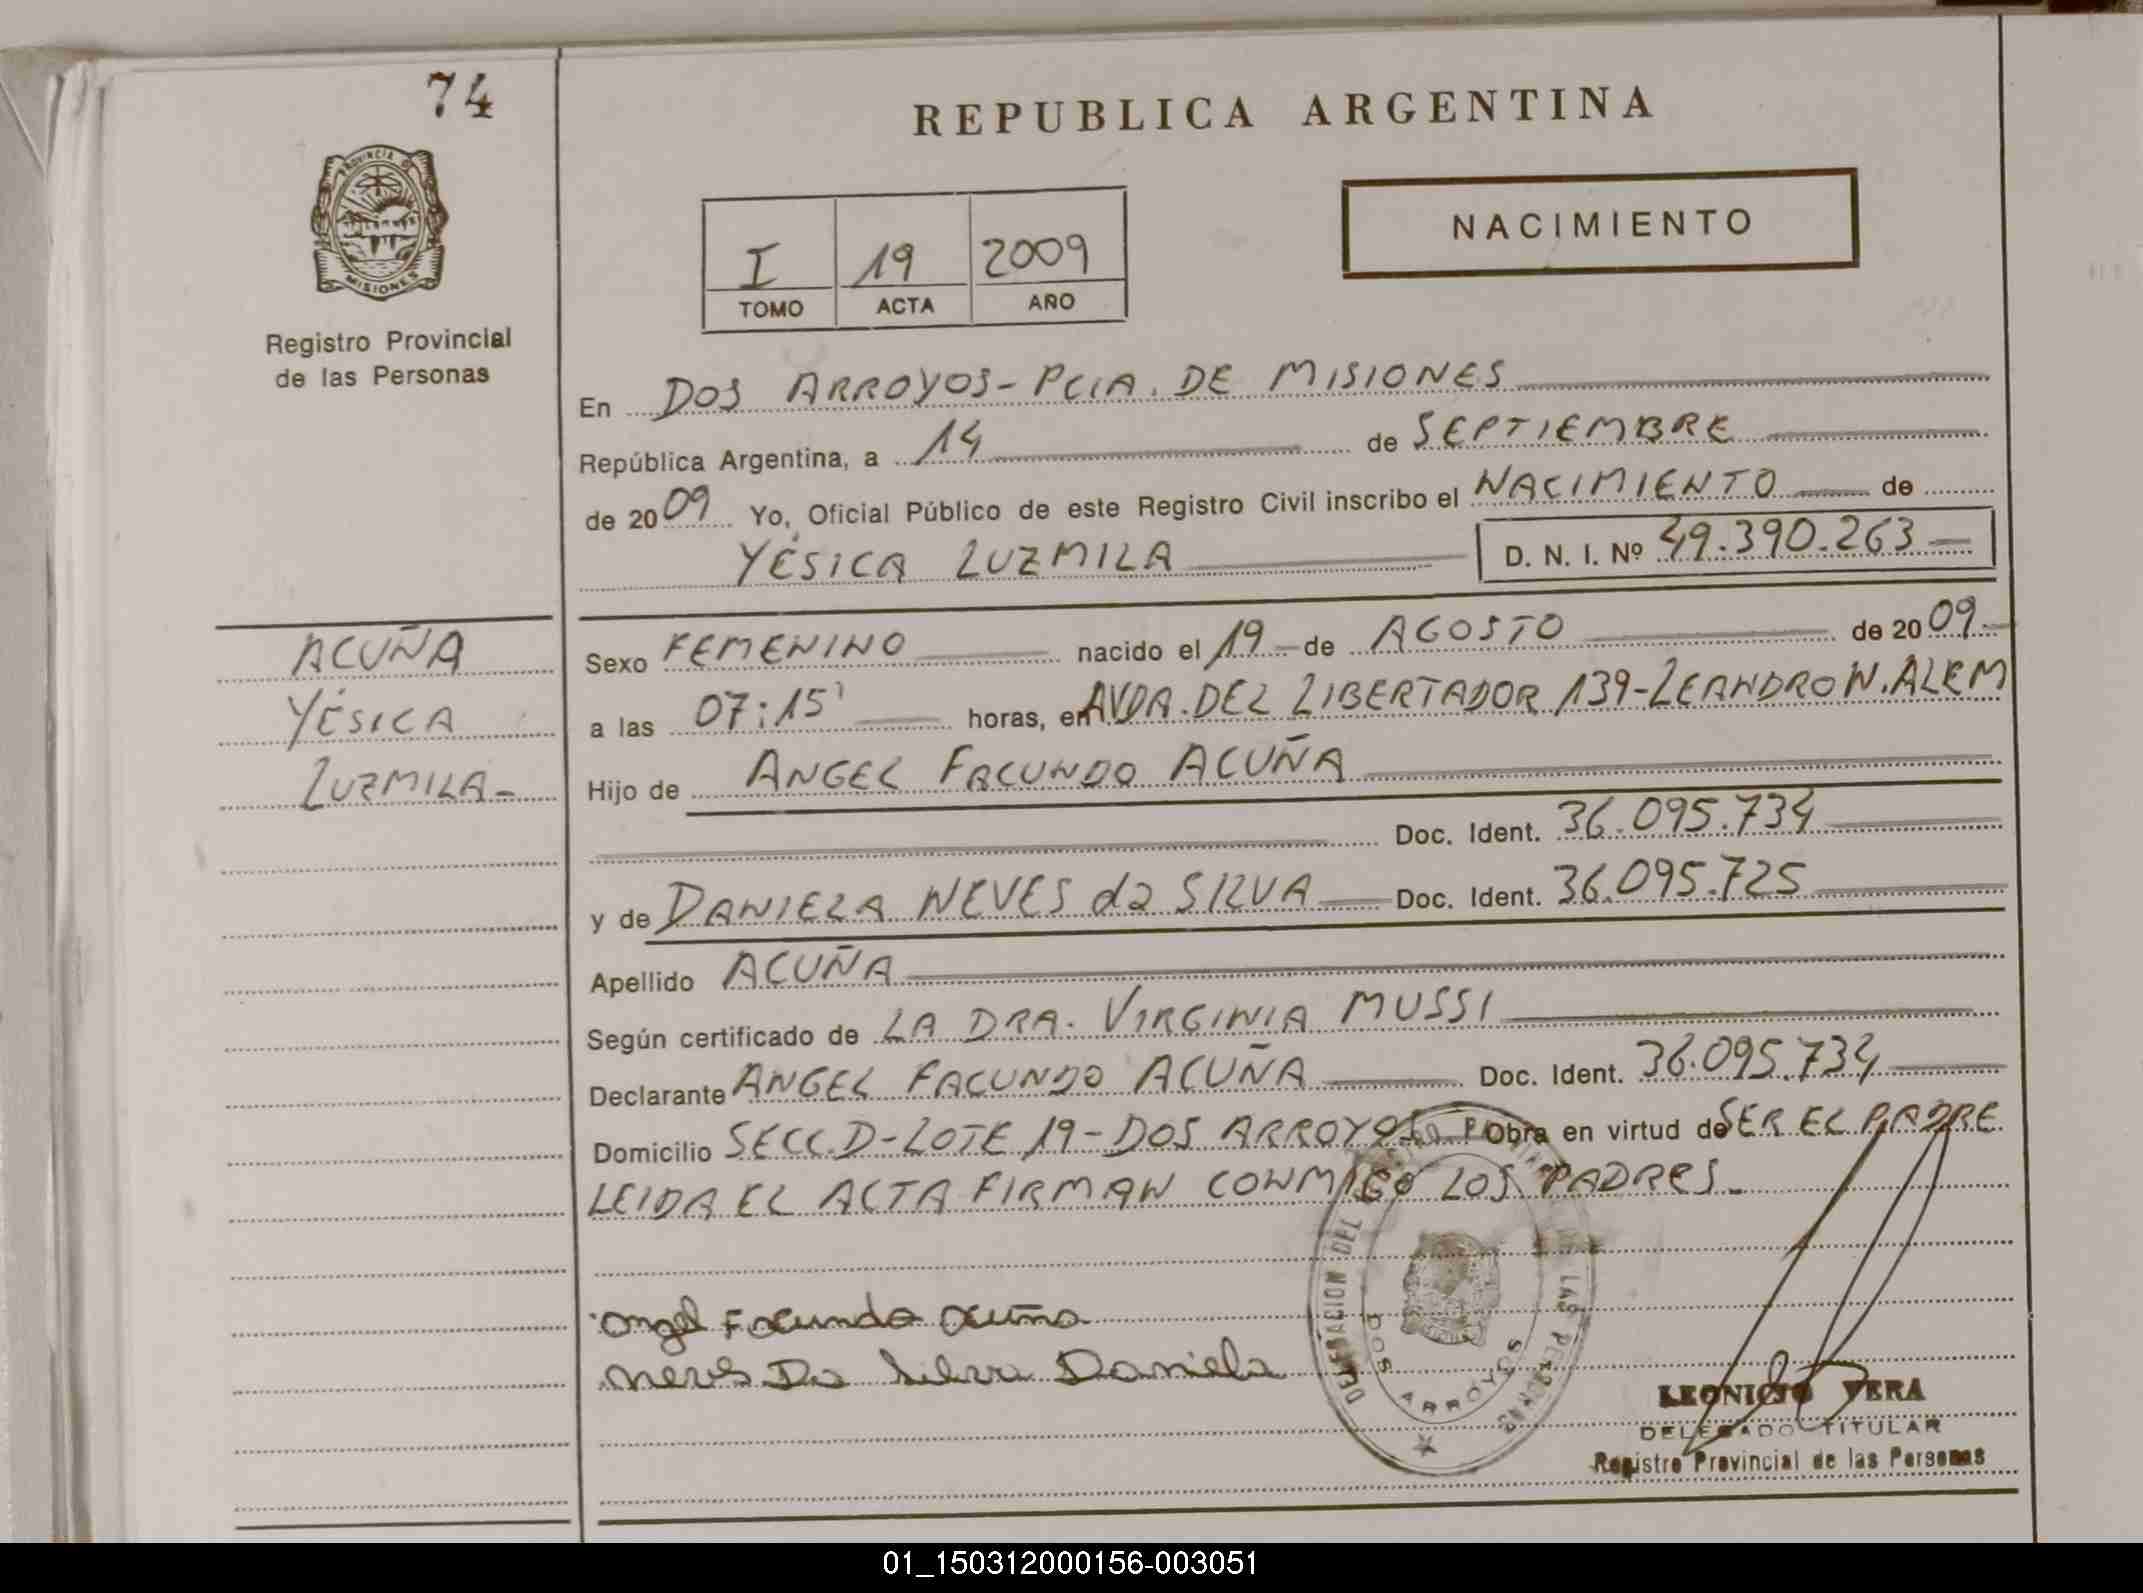 74
REPUBLICA ARGENTINA
PROVINCIA DE
MISIONES
NACIMIENTO
I 19 2009
TOMO ACTA AÑO
Registro Provincial
de las Personas
En DOS ARROYOS - PCIA. DE MISIONES
República Argentina, a 14 de SEPTIEMBRE
de 2009 Yo, Oficial Público de este Registro Civil inscribo el NACIMIENTO de
YÉSICA LUZMILA D. N. I. Nº 49.390.263
ACUÑA
YÉSICA
LUZMILA-
Sexo FEMENINO nacido el 19 de AGOSTO de 2009
a las 07:15' horas, en AVDA. DEL LIBERTADOR 139-LEANDRO N. ALEM
Hijo de ANGEL FACUNDO ACUÑA
Doc. Ident. 36.095.734
y de DANIELA NEVES da SILVA Doc. Ident. 36.095.725
Apellido ACUÑA
Según certificado de LA DRA. VIRGINIA MUSSI
Declarante ANGEL FACUNDO ACUÑA Doc. Ident. 36.095.734
Domicilio SECC. D-LOTE 19-DOS ARROYOS Obra en virtud de SER EL PADRE
LEIDA EL ACTA FIRMAN CONMIGO LOS PADRES.
Angel Facundo Acuña
Neves Da Silva Daniela
DELEGACION DEL LAS PERSONAS
DOS ARROYOS
LEONICIO VERA
DELEGADO TITULAR
Registro Provincial de las Personas
01_150312000156-003051